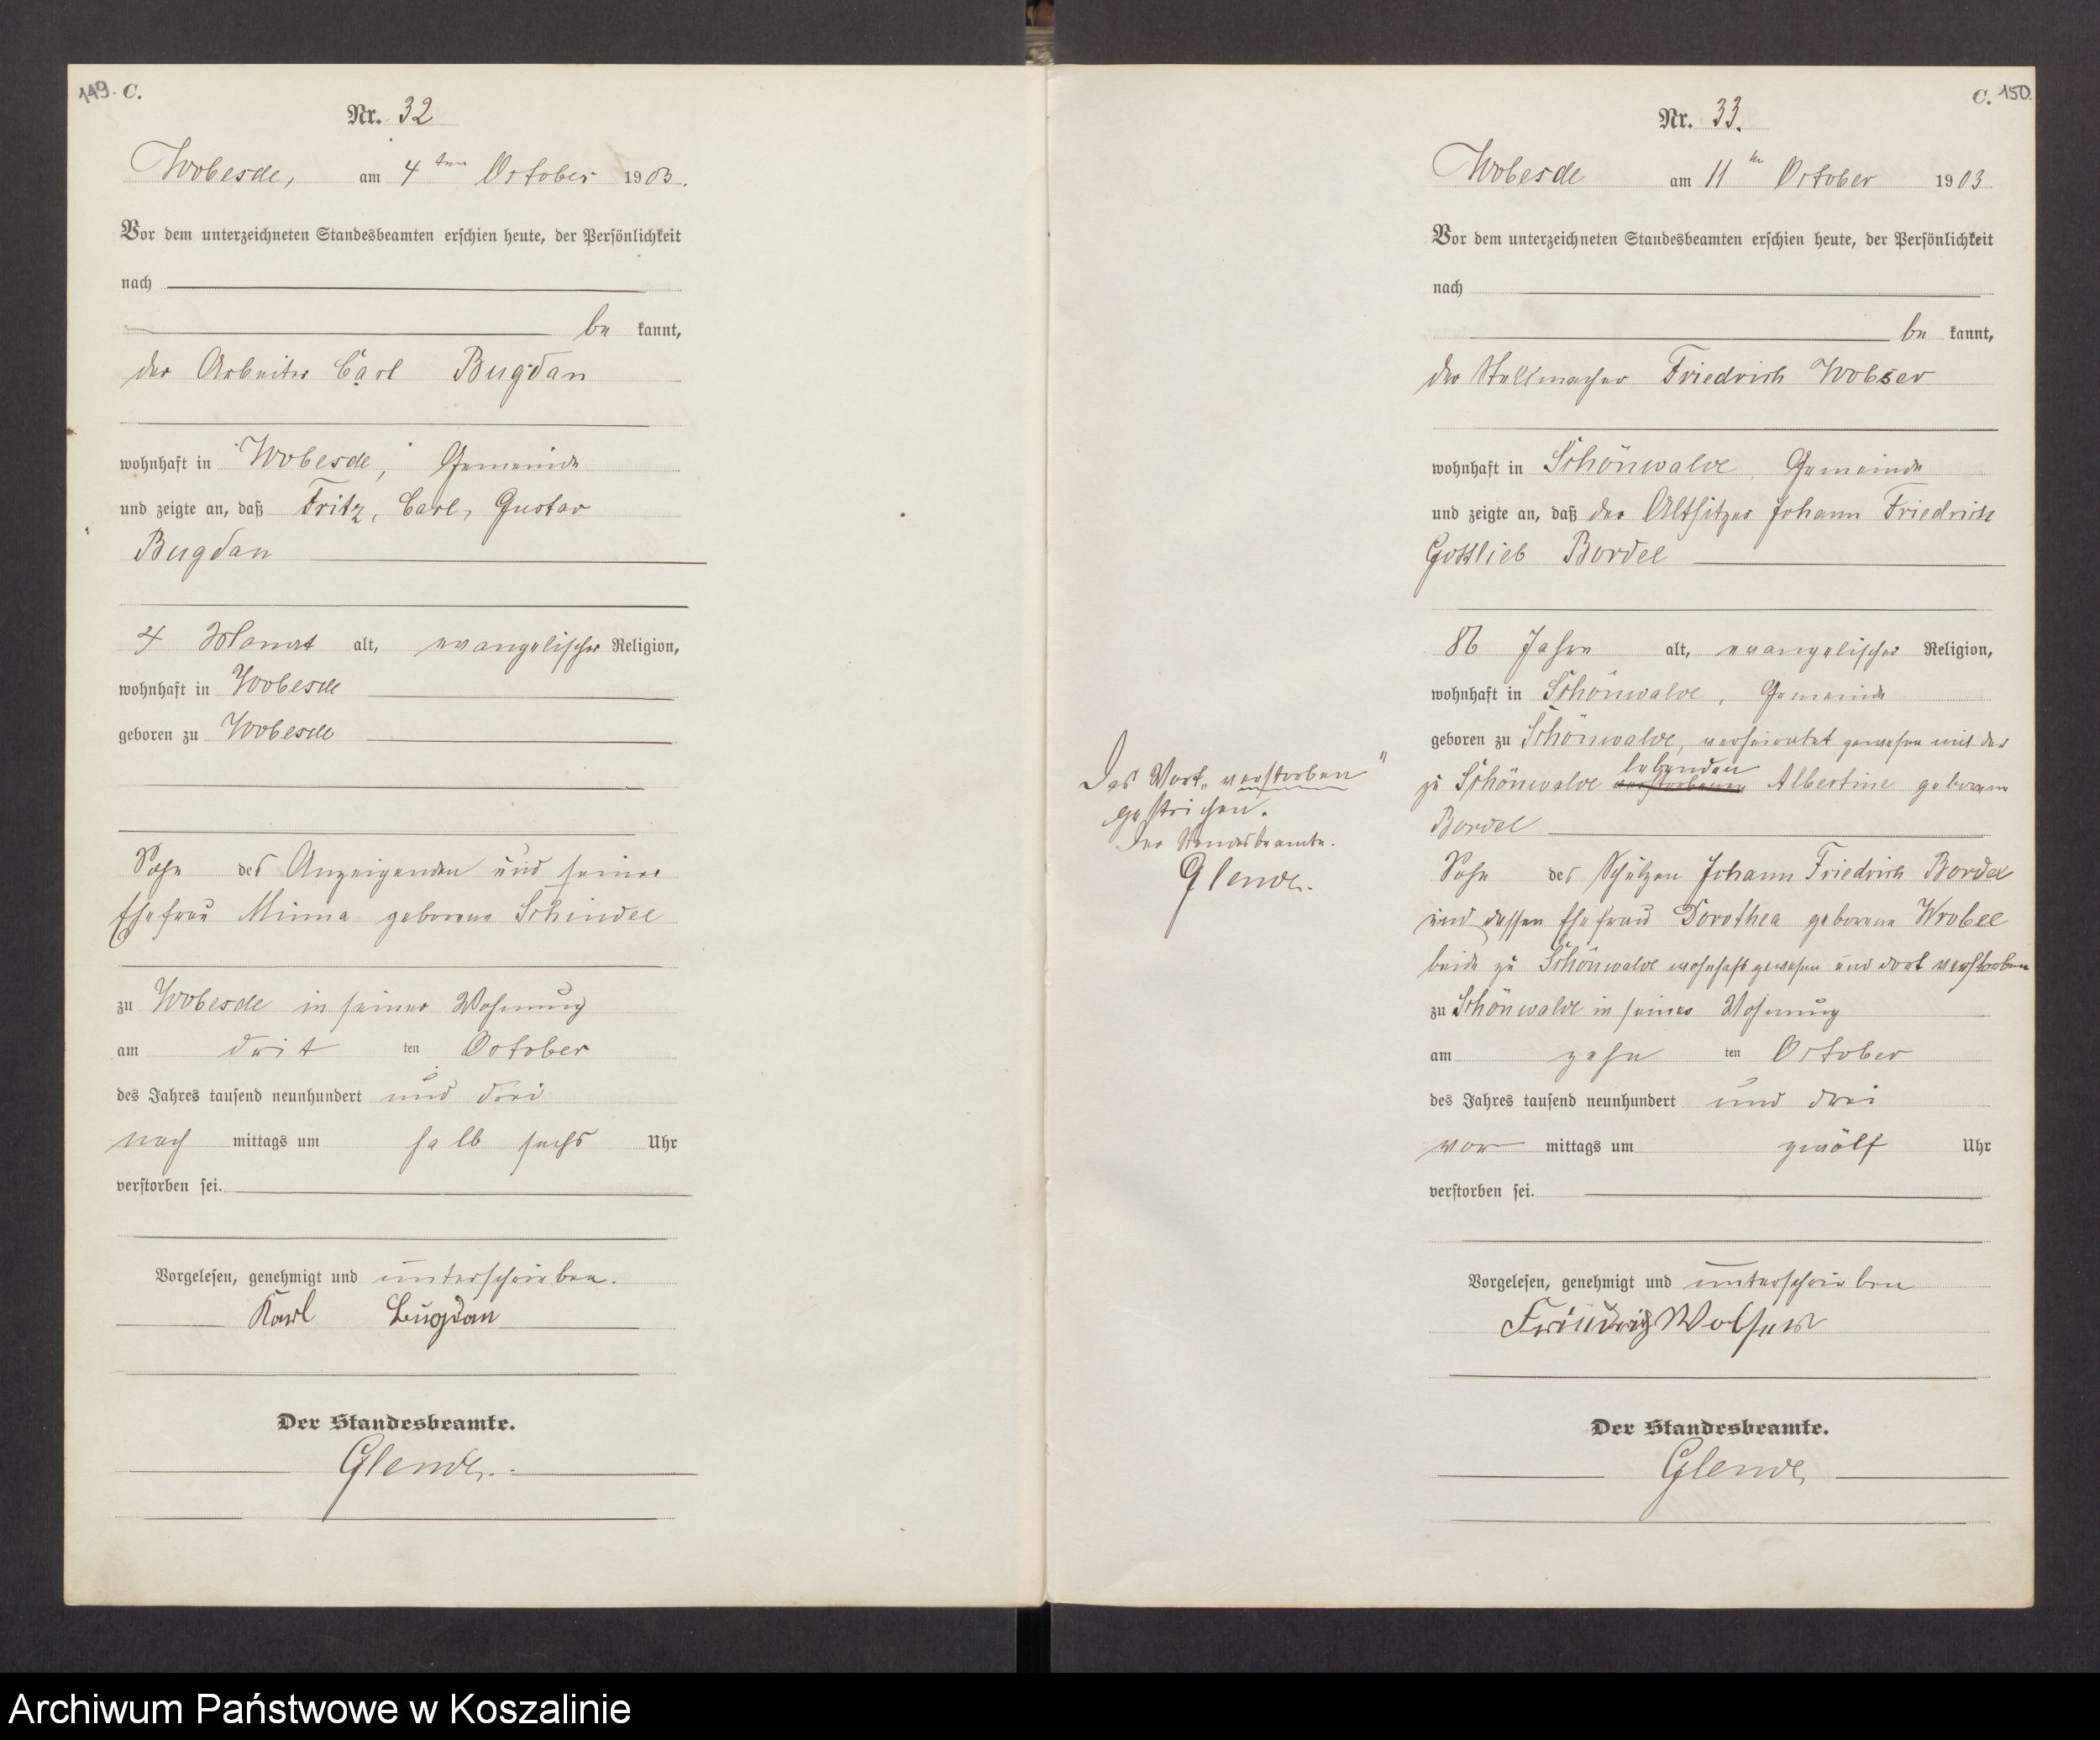 149. C.
Nr. 32
Wobesde, am 4ten October 1903.
Vor dem unterzeichneten Standesbeamten erschien heute, der Persönlichkeit
nach
be kannt,
der Arbeiter Carl Bugdan
wohnhaft in Wobesde, Gemeinde
und zeigte an, daß Fritz, Carl, Gustav
Bugdan
4 Monat alt, evangelischer Religion,
wohnhaft in Wobesde
geboren zu Wobesde
Sohn des Anzeigenden und seiner
Ehefrau Minna geborene Schindel
zu Wobesde in seiner Wohnung
am drit ten October
des Jahres tausend neunhundert und drei
nach mittags um halb sechs Uhr
verstorben sei.
Vorgelesen, genehmigt und unterschrieben.
Karl Bugdan
Der Standesbeamte.
Glende.
C. 150.
Nr. 33.
Wobesde am 11ten October 1903
Vor dem unterzeichneten Standesbeamten erschien heute, der Persönlichkeit
nach
be kannt,
der Stellmacher Friedrich Wobser
wohnhaft in Schönwalde, Gemeinde
und zeigte an, daß der Altsitzer Johann Friedrich
Gottlieb Bordel
86 Jahre alt, evangelischer Religion,
wohnhaft in Schönwalde, Gemeinde
geboren zu Schönwalde, verheiratet gewesen mit der
lebenden
zu Schönwalde verstorbenen Albertine geborene
Bordel
Das Wort „verstorben"
gestrichen.
Der Standesbeamte.
Glende.
Sohn des Schulzen Johann Friedrich Bordel
und dessen Ehefrau Dorothea geborene Wrobel
beide zu Schönwalde wohnhaft gewesen und dort verstorben
zu Schönwalde in seiner Wohnung
am zehn ten October
des Jahres tausend neunhundert und drei
vor mittags um zwölf Uhr
verstorben sei.
Vorgelesen, genehmigt und unterschrieben
Friedrich Wobser
Der Standesbeamte.
Glende
Archiwum Państwowe w Koszalinie